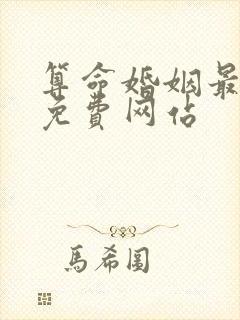 算命婚姻最
免費网佔
馬希圖